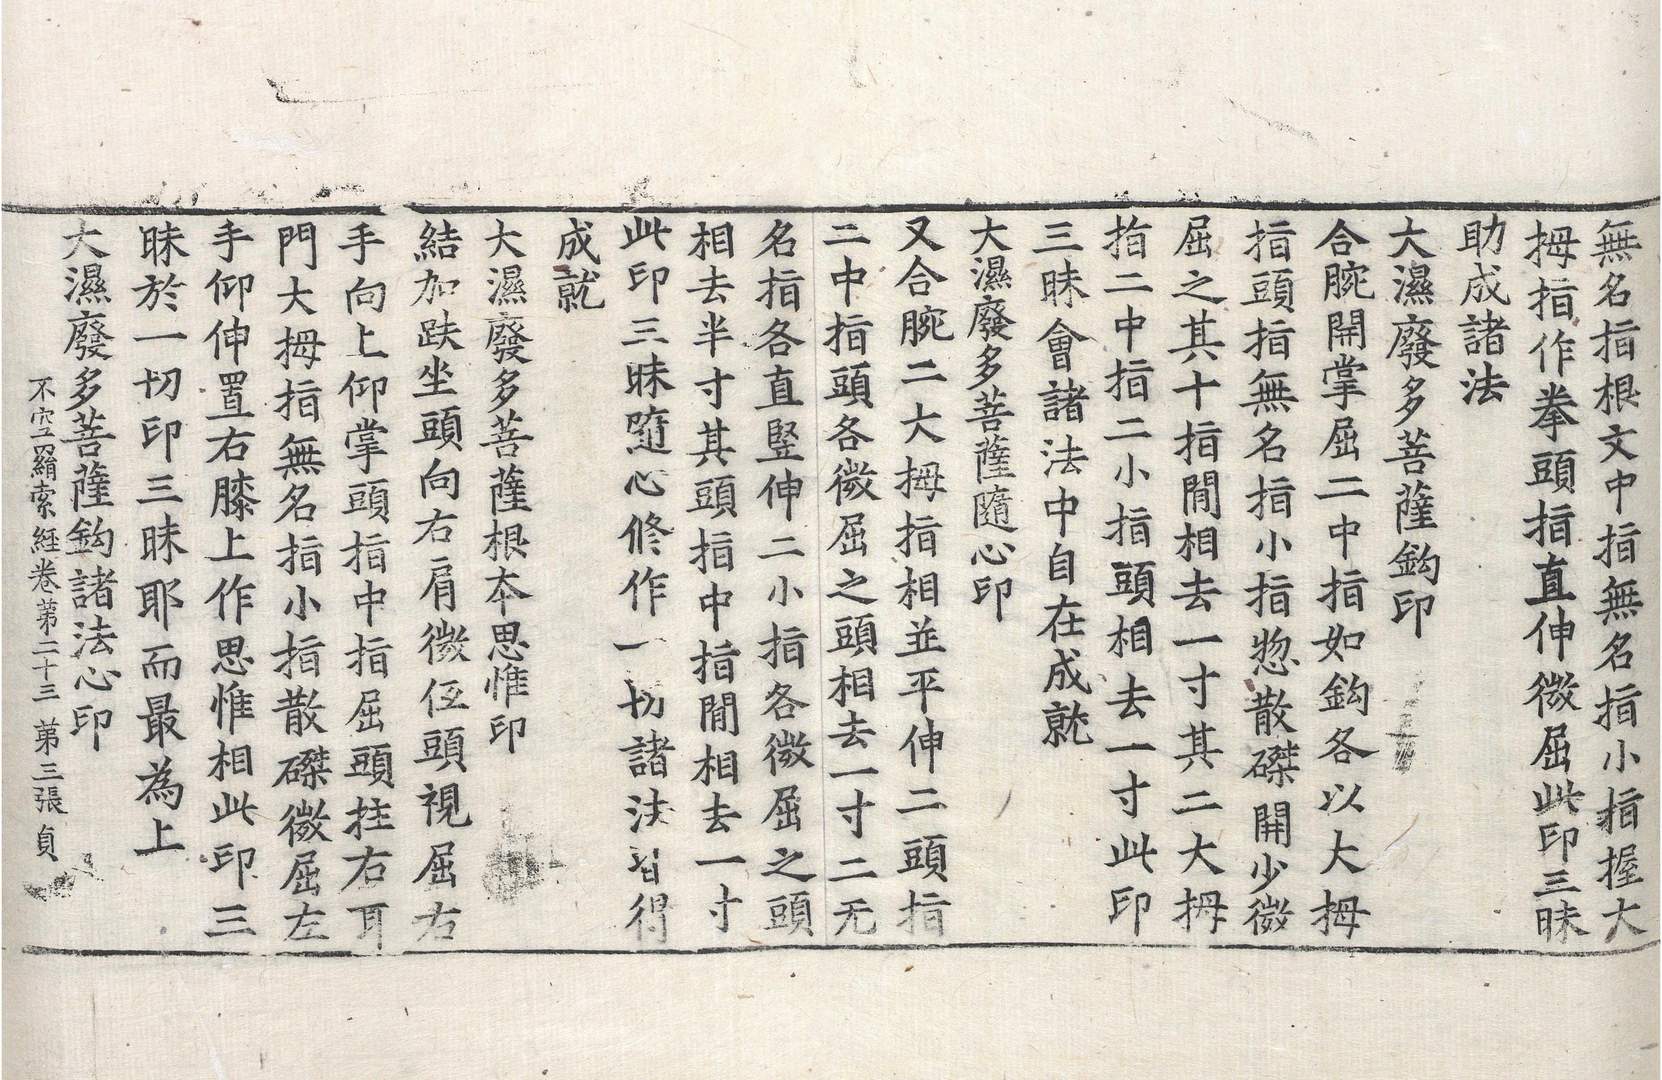 無名指根文中指無名指小指握大
拇指作拳頭指直伸微屈此印三昧
助成諸法
大濕廢多菩薩鈎印
合腕開掌屈二中指如鈎各以大拇
指頭指無名指小指惣散磔開少微
屈之其十指閒相去一寸其二大拇
指二中指二小指頭相去一寸此印
三昧會諸法中自在成就
大濕廢多菩薩隨心印
又合腕二大拇指相並平伸二頭指
二中指頭各微屈之頭相去一寸二无
名指各直豎伸二小指各微屈之頭
相去半寸其頭指中指閒相去一寸
此印三昧隨心修作一切諸法皆得
成就
大濕廢多菩薩根本思惟印
結加趺坐頭向右肩微低頭視屈右
手向上仰掌頭指中指屈頭拄右耳
門大拇指無名指小指散磔微屈左
手仰伸置右膝上作思惟相此印三
昧於一切印三昧耶而最為上
大濕廢多菩薩鈎諸法心印
不空羂索經卷第二十三 第三張 貞